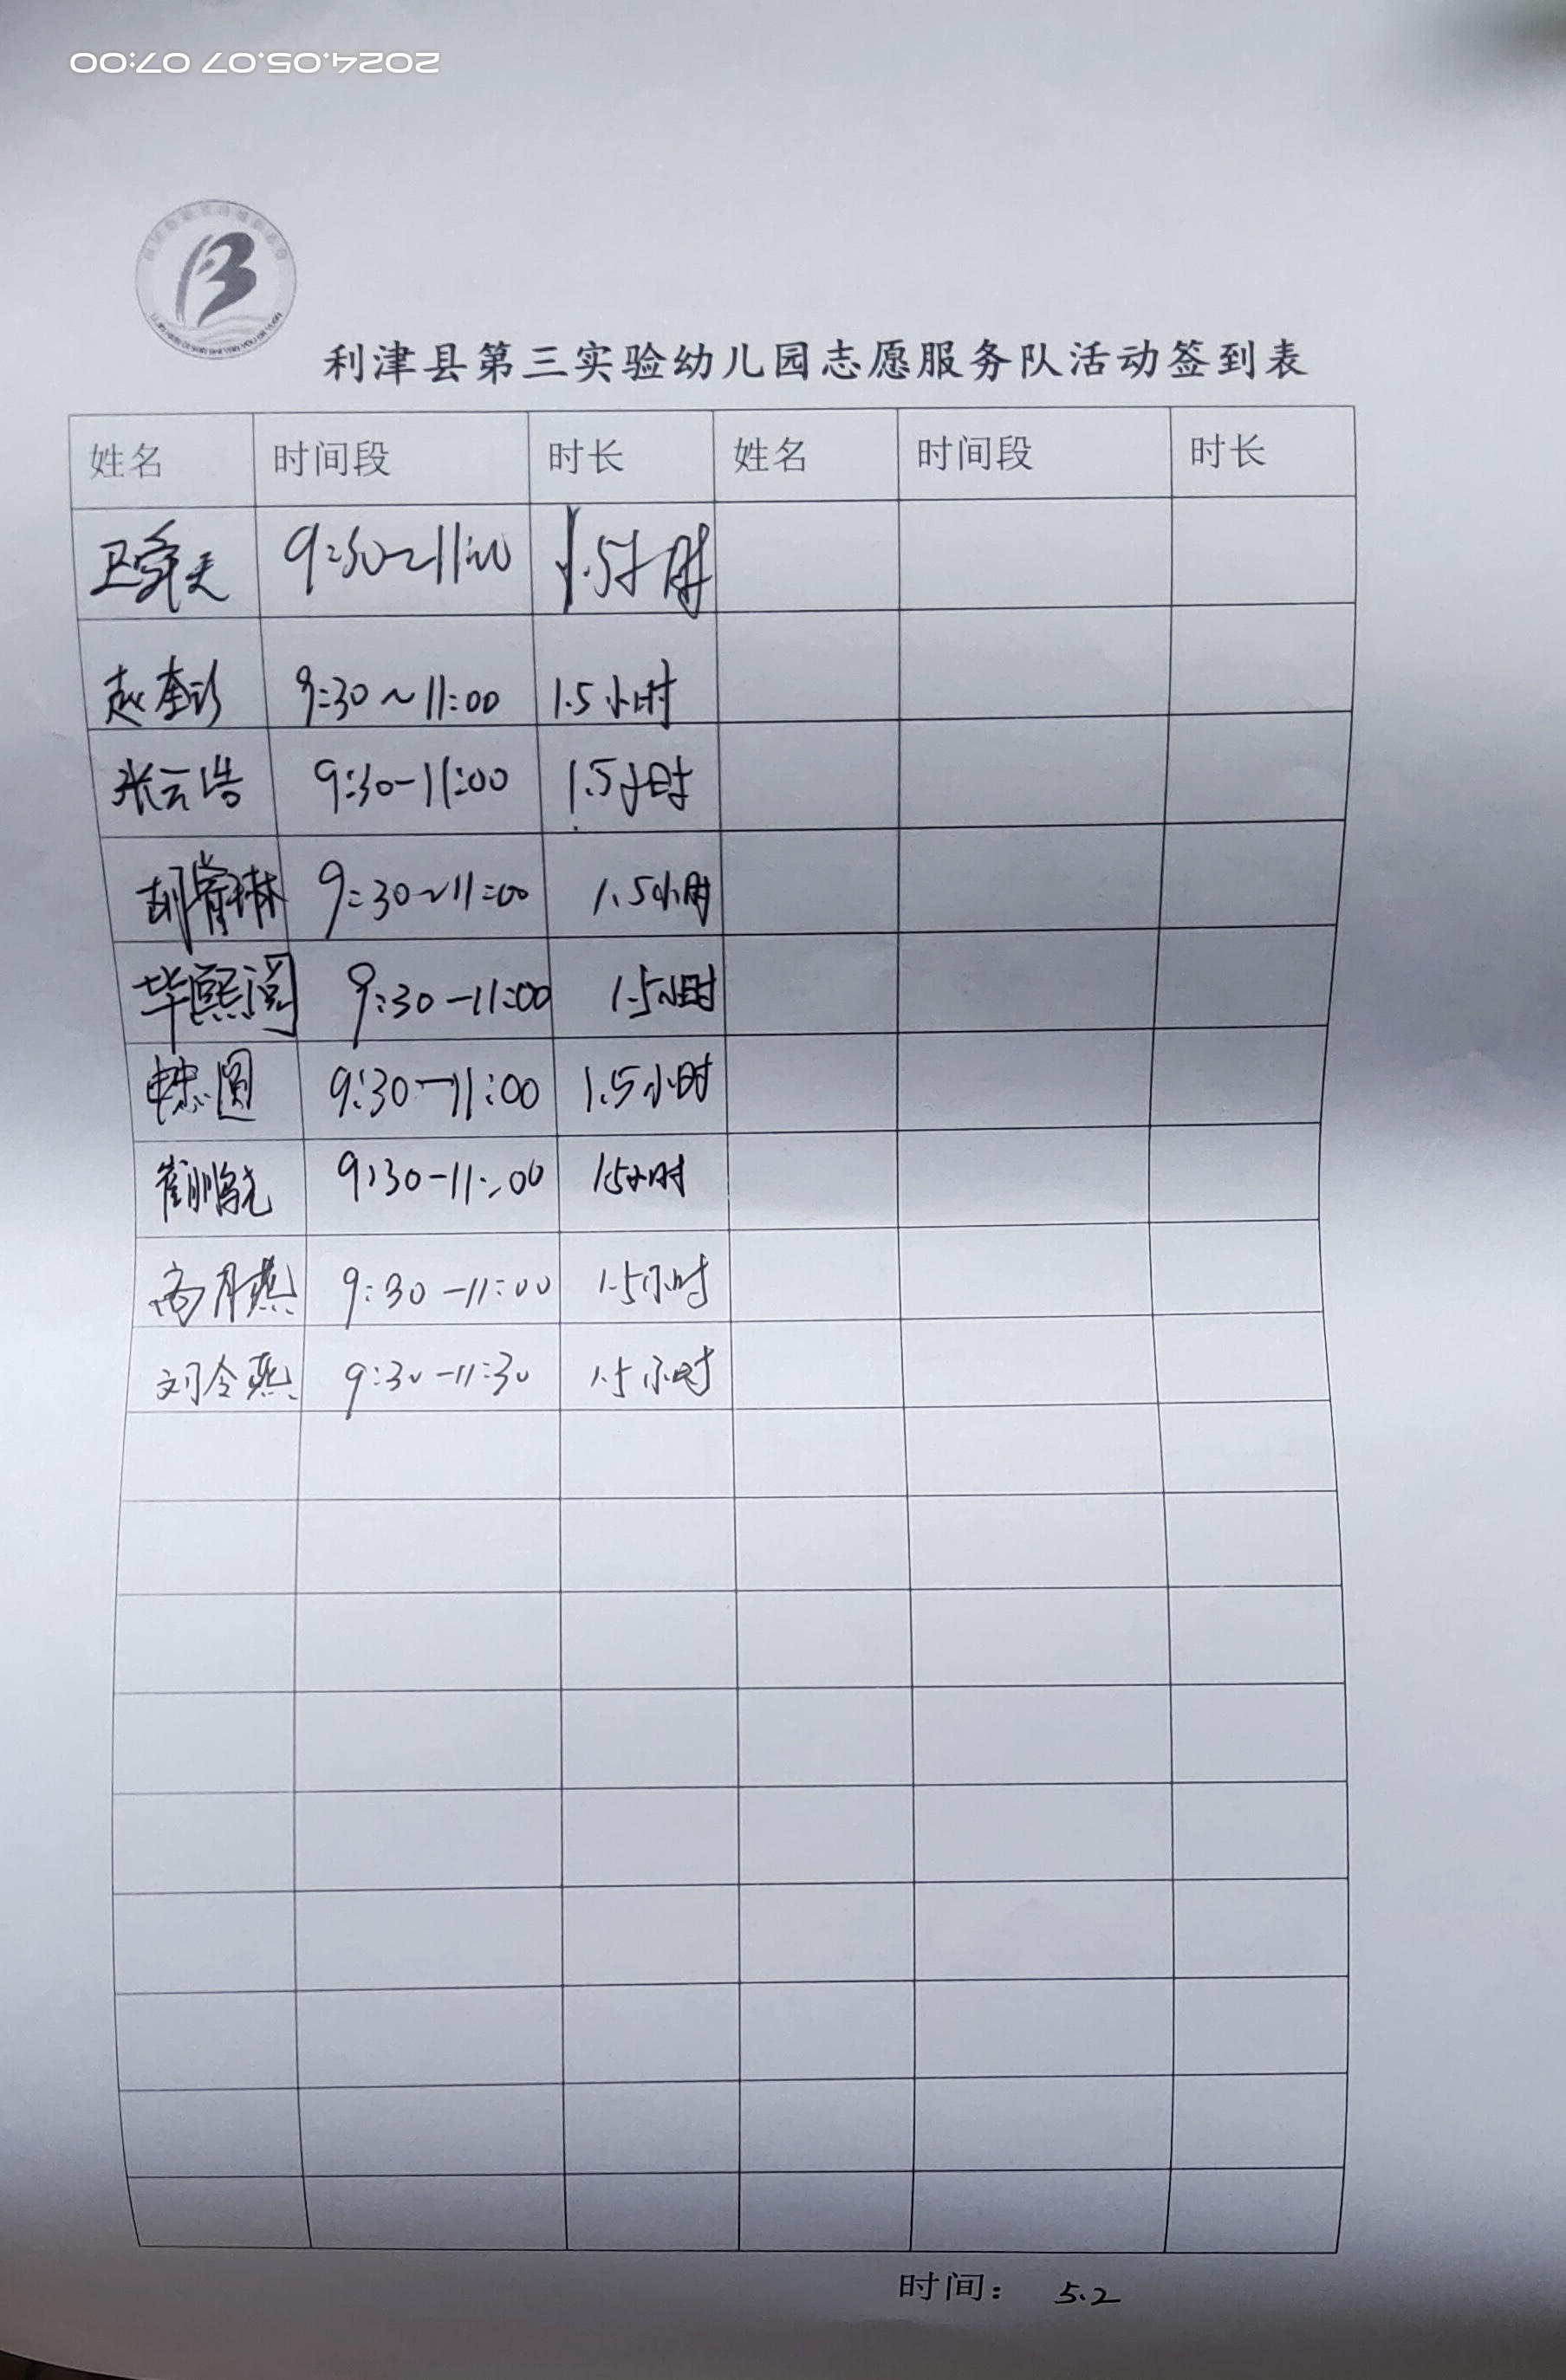 2024.05.07 07:00
利津县第三实验幼儿园志愿服务队活动签到表
姓名 时间段 时长 姓名 时间段 时长
9:30~11:00 1.5小时
赵奎珍 9:30~11:00 1.5小时
张云浩 9:30-11:00 1.5小时
胡睿琳 9:30~11:00 1.5小时
毕熙阅 9:30-11:00 1.5小时
9:30-11:00 1.5小时
崔鹏 9:30-11:00 1.5小时
高月燕 9:30-11:00 1.5小时
刘令燕 9:30-11:30 1.5小时
时间: 5.2